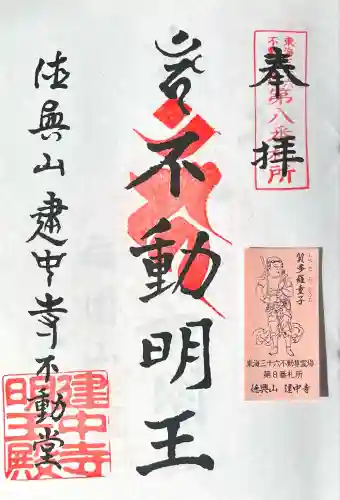 奉拝
東海三十六
不動尊霊場
第八番札所
不動明王
徳興山建中寺不動堂
建中寺
明王殿
制多迦童子
東海三十六不動尊霊場
第8番札所
徳興山 建中寺